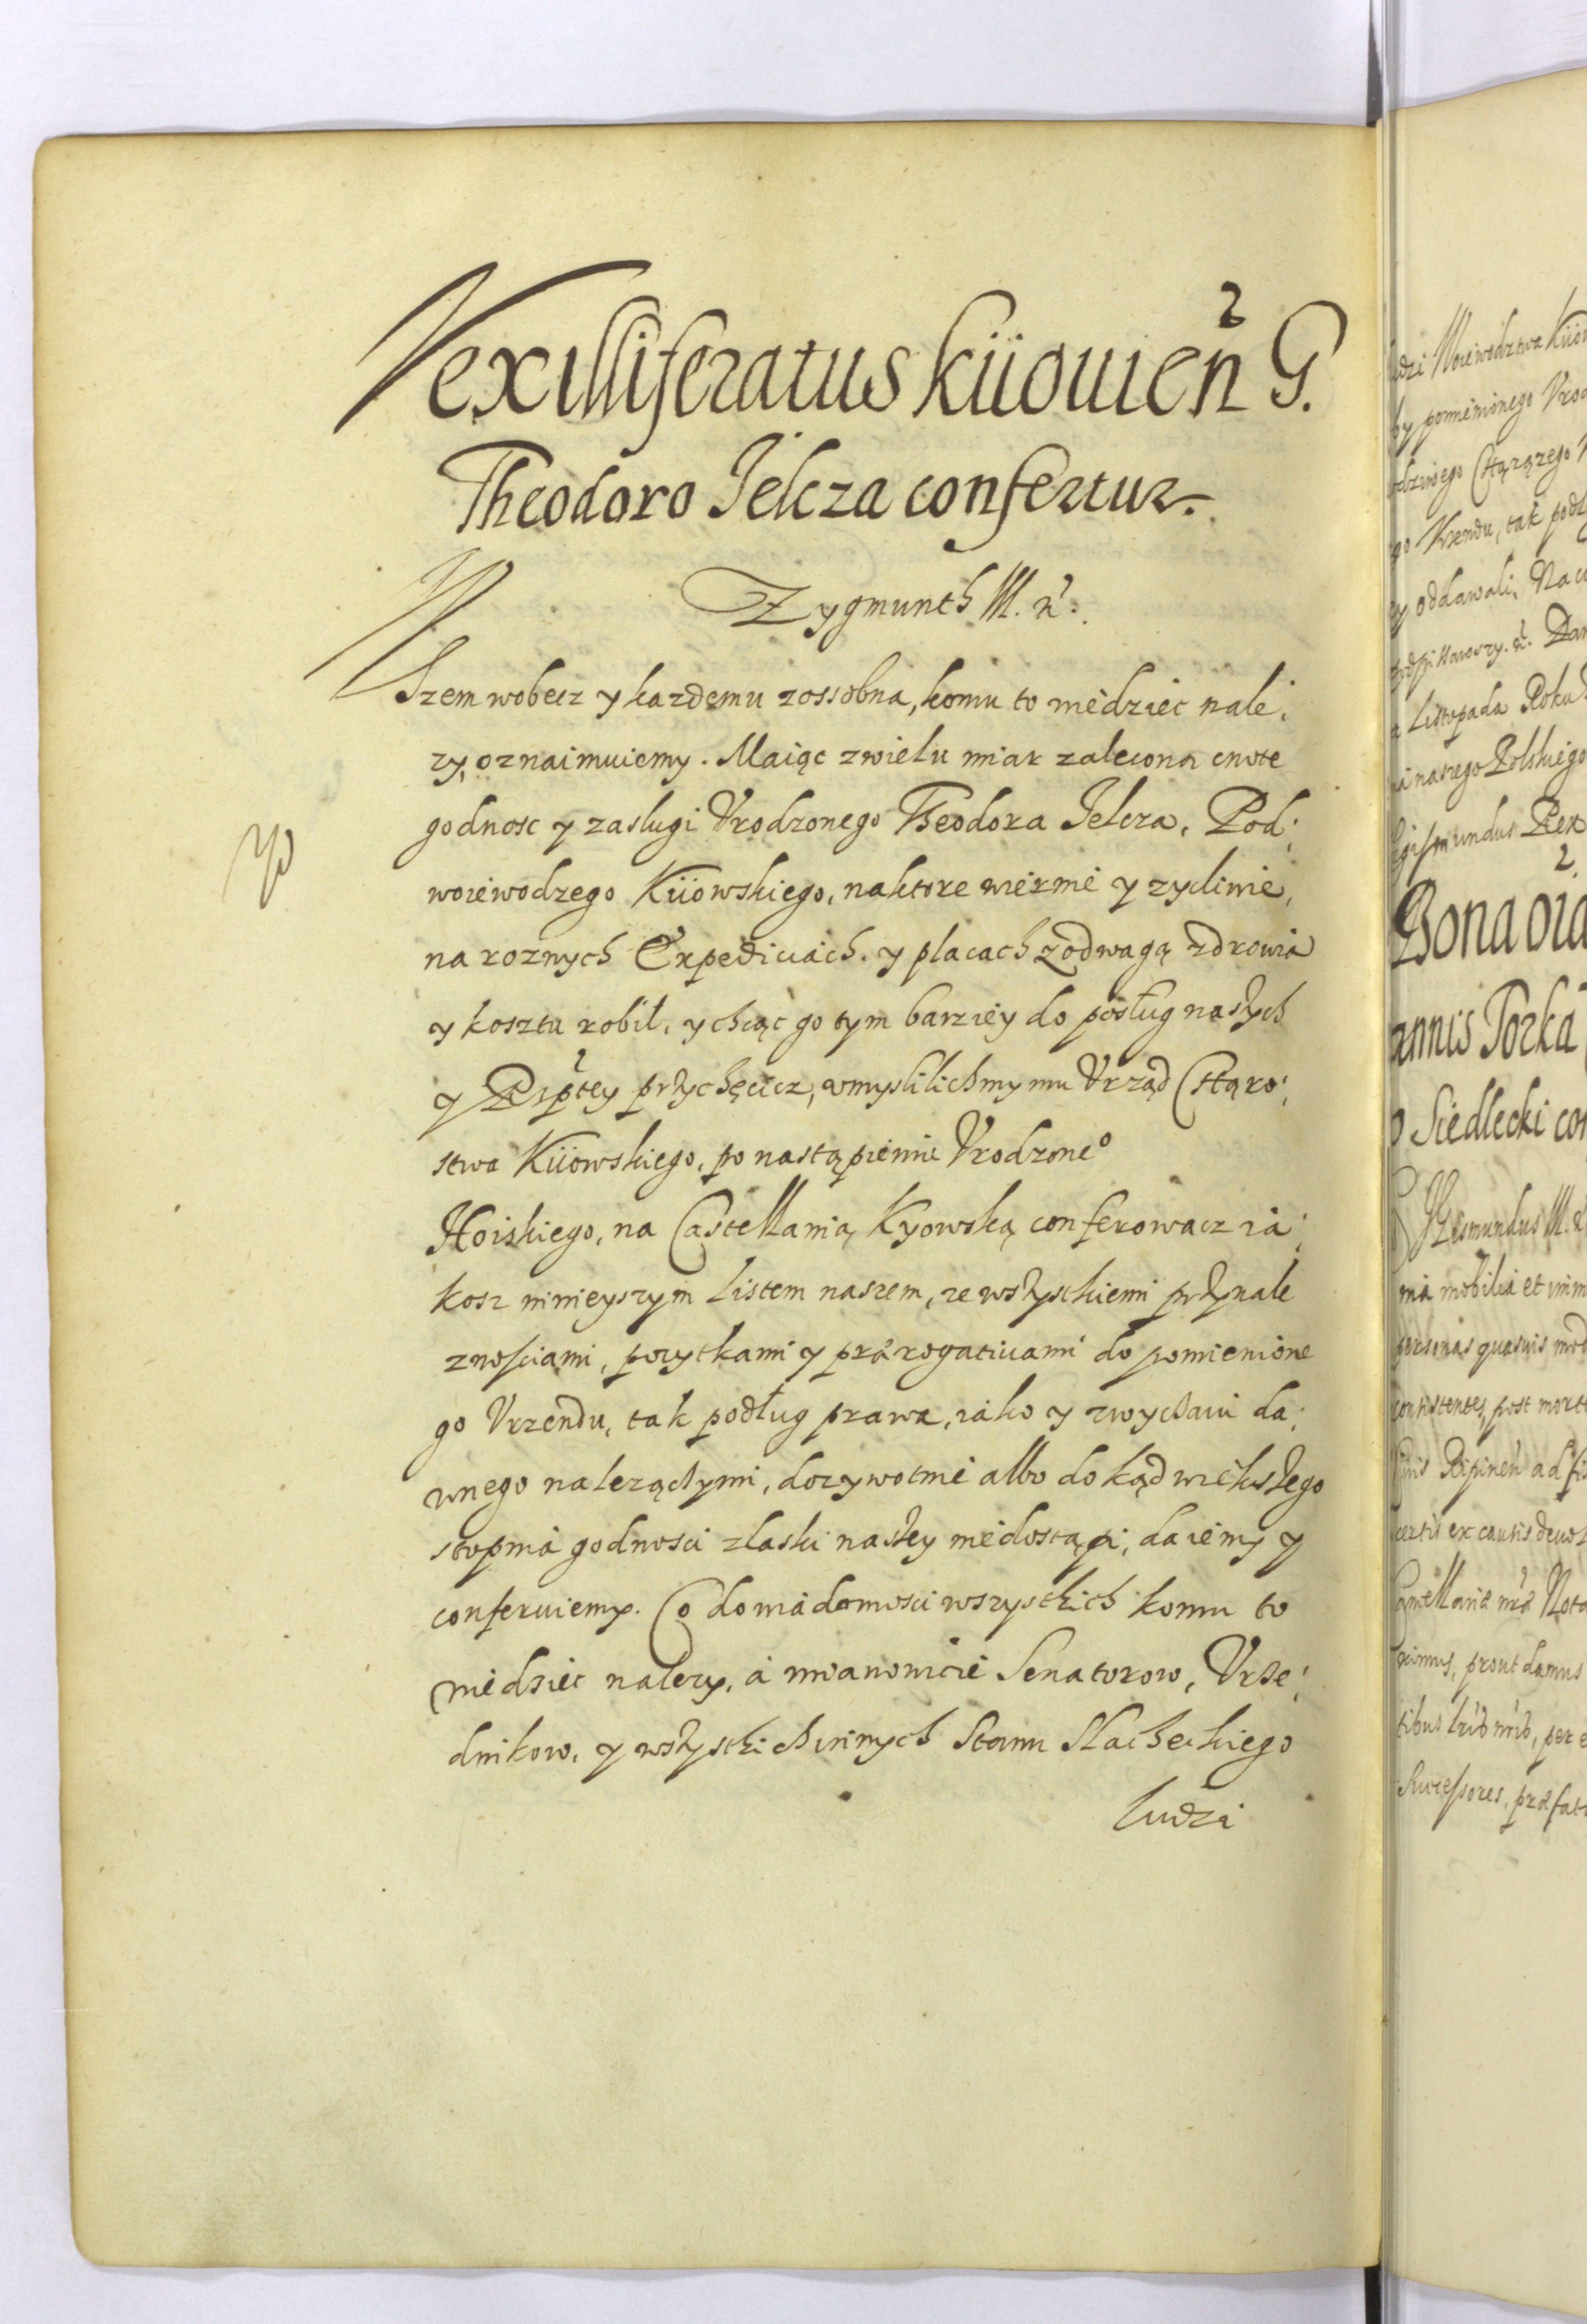 Vexilliferatus Kiiouien̄ G.
Theodoro Jelcza confertur.
Zygmunth III. &.
Wszem wobecz y kazdemu zossobna, komu to wiedziec nale,
zy, oznaimuiemy. Maiąc zwielu miar zalecona cnote
godnosc y zaslugi Vrodzonego Theodora Jelcza, Pod,
woiewodzego Kiiowskiego, naktore wiernie y zycliwie,
na roznych Expediciach. y placach zodwagą zdrowia
y kosztu robił, y chcąc go tym barziey do posług naszych
y Rzptey przychęcicz, vmyslilichmy mu Vrząd Chąro,
stwa Kiiowskiego, po nastąpieniu Vrodzone⁰
Hoiskiego, na Castellanią Kyowską conferowacz ia,
kosz ninieyszym Listem naszem, ze wszystkiemi przynale
znosciami, pozytkami y prærogatiuami do pomienione
go Vrzendu, tak podług prawa, iako y zwyczaiu da,
wnego nalezączymi, dozywotnie albo do kąd wiekszego
stopnia godnosci zlaski naszey niedostąpi, daiemy y
conferuiemy. Co do wiadomosci wszystkich komu to
wiedziec nalezy, a mianowicie Senatorow, Vrze,
dnikow, y wszystkich innych Stanu Slacheckiego
ludzi
ludzi Woiewodztwa Kiiow
by pomienionego Vrod
Chąrązego
go Vrzendu, tak podz
oddawali, Na co
Dan
Listopada Roku
naszego Polskiego
Sigismundus Rex
Bona oia
annis Torka
Siedlecki con
Sigismundus III. &
mobilia et imm
personas quasuis mod
consistentes, post morte
Bipinen̄ ad fis
certis ex causis deuol
Cancellariæ nr̄æ Nota
rimus, prout damus
tibus, per e
Successores, præfat